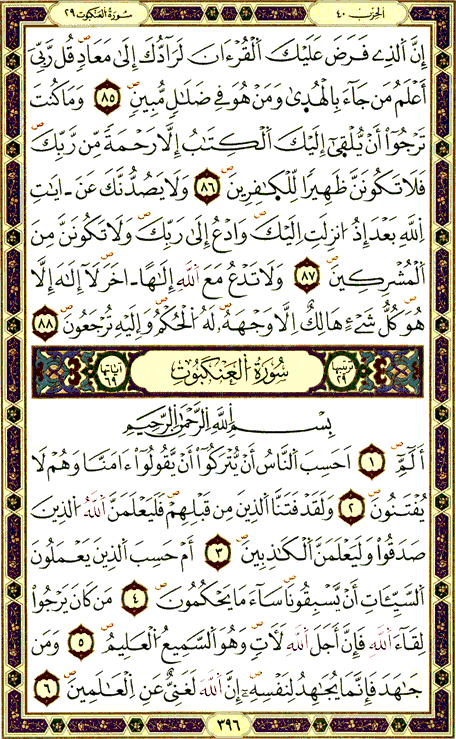 الحزب ٤٠
سورة العنكبوت ٢٩
إِنَّ ٱلذِے فَرَضَ عَلَيْكَ ٱلْقُرْءَانَ لَرَآدُّكَ إِلَىٰ مَعَادٖۖ قُل رَّبِّيَ
أَعْلَمُ مَن جَآءَ بِالْهُدَىٰ وَمَنْ هُوَ فِے ضَلَٰلٖ مُّبِينٖۖ ٨٥ وَمَا كُنتَ
تَرْجُوٓاْ أَنْ يُّلْقَىٰٓ إِلَيْكَ ٱلْكِتَٰبُ إِلَّا رَحْمَةٗ مِّن رَّبِّكَۖ
فَلَا تَكُونَنَّ ظَهِيراٗ لِّلْكٰ۪فِرِينَۖ ٨٦ وَلَا يَصُدُّنَّكَ عَنَ ـايَٰتِ
اِ۬للَّهِ بَعْدَ إِذُ ا۟نزِلَتِ اِلَيْكَۖ وَادْعُ إِلَىٰ رَبِّكَۖ وَلَا تَكُونَنَّ مِنَ
ٱلْمُشْرِكِينَۖ ٨٧ وَلَا تَدْعُ مَعَ اَ۬للَّهِ إِلَٰهاً ـاخَرَۖ لَآ إِلَٰهَ إِلَّا
هُوَۖ كُلُّ شَےْءٍ هَالِكٌ اِلَّا وَجْهَهُۥۖ لَهُ اُ۬لْحُكْمُ وَإِلَيْهِ تُرْجَعُونَۖ ٨٨
ترتيبها ٢٩
سُورَةُ ٱلْعَنكَبُوتِ
آياتها ٦٩
بِسْمِ اِ۬للَّهِ اِ۬لرَّحْمَٰنِ اِ۬لرَّحِيمِ
أَلَٓمِّٓۖ ١ اَحَسِبَ ٱلنَّاسُ أَنْ يُّتْرَكُوٓاْ أَنْ يَّقُولُوٓاْ ءَامَنَّا وَهُمْ لَا
يُفْتَنُونَۖ ٢ وَلَقَدْ فَتَنَّا ٱلذِينَ مِن قَبْلِهِمْۖ فَلَيَعْلَمَنَّ اَ۬للَّهُ اُ۬لذِينَ
صَدَقُواْ وَلَيَعْلَمَنَّ ٱلْكَٰذِبِينَۖ ٣ أَمْ حَسِبَ ٱلذِينَ يَعْمَلُونَ
ٱلسَّيِّـَٔاتِ أَنْ يَّسْبِقُونَاۖ سَآءَ مَا يَحْكُمُونَۖ ٤ مَن كَانَ يَرْجُواْ
لِقَآءَ اَ۬للَّهِ فَإِنَّ أَجَلَ اَ۬للَّهِ لَأٓتٖۖ وَهُوَ ٱلسَّمِيعُ ٱلْعَلِيمُۖ ٥ وَمَن
جَٰهَدَ فَإِنَّمَا يُجَٰهِدُ لِنَفْسِهِۦٓۖ إِنَّ اَ۬للَّهَ لَغَنِيٌّ عَنِ اِ۬لْعَٰلَمِينَۖ ٦
٣٩٦